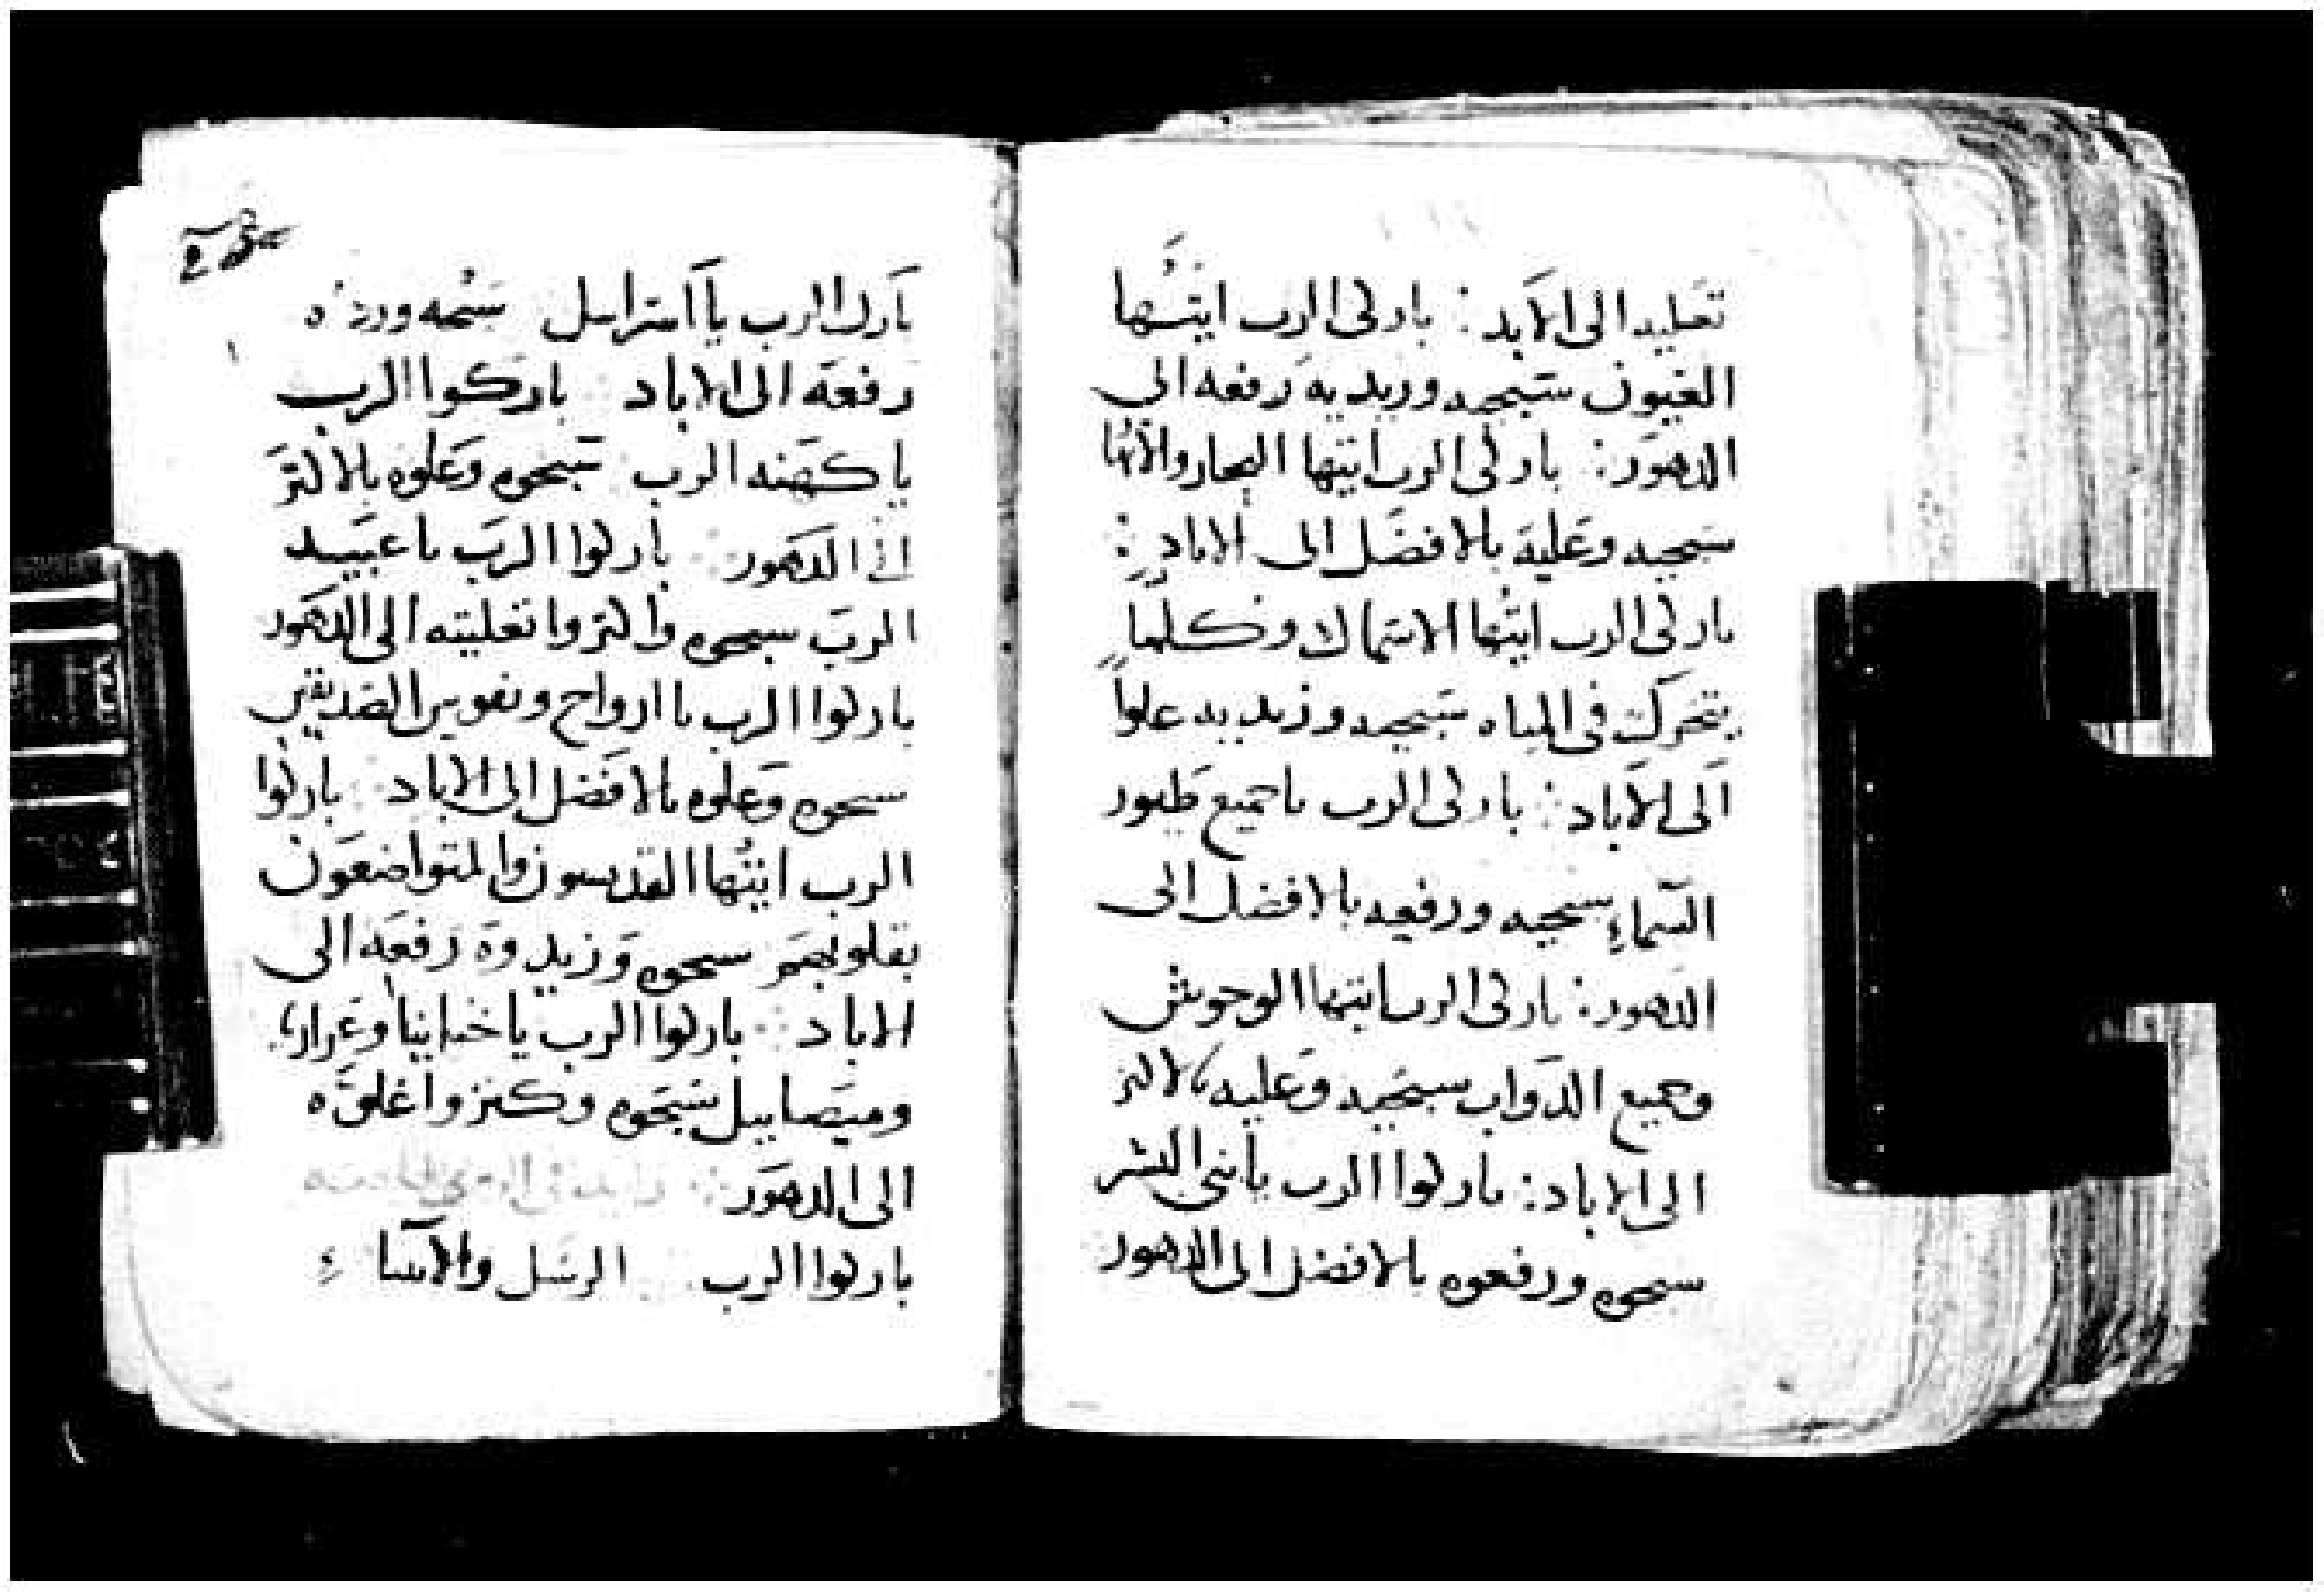 تعليه الى الابد : باركى الرب ايتها
العيون سبحيه وزيديه رفعه الى
الدهور : باركى الرب ايتها البحار والانها
سبحيه وعليه بالافضل الى الاباد :
باركى الرب ايتها الاسماك وكلما
يتحرك فى المياه سبحيه وزيديه علوا
الى الاباد : باركى الرب يا جميع طيور
السماء سبحيه ورفعيه بالافضل الى
الدهور : باركى الرب ايتها الوحوش
وجميع الدواب سبحيه وعليه بالاكثر
الى الاباد : باركوا الرب يا بني البشر
سبحوه ورفعوه بالافضل الى الدهور
بارك الرب يا اسراييل سبحه وزده
رفعه الى الاباد باركوا الرب
يا كهنه الرب سبحوه وعلوه بالاكثر
الى الدهور : باركوا الرب يا عبيد
الرب سبحوه واكثروا تعليته الى الدهور
باركوا الرب يا ارواح ونفوس الصديقين
سبحوه وعلوه بالافضل الى الاباد باركوا
الرب ايتها القديسون والمتواضعون
بقلوبهم سبحوه وزيدوه رفعه الى
الاباد : باركوا الرب يا حنانيا وعزاريا
وميصاييل سبحوه وكثروا علوه
الى الدهور :
باركوا الرب الرسل والانبياء